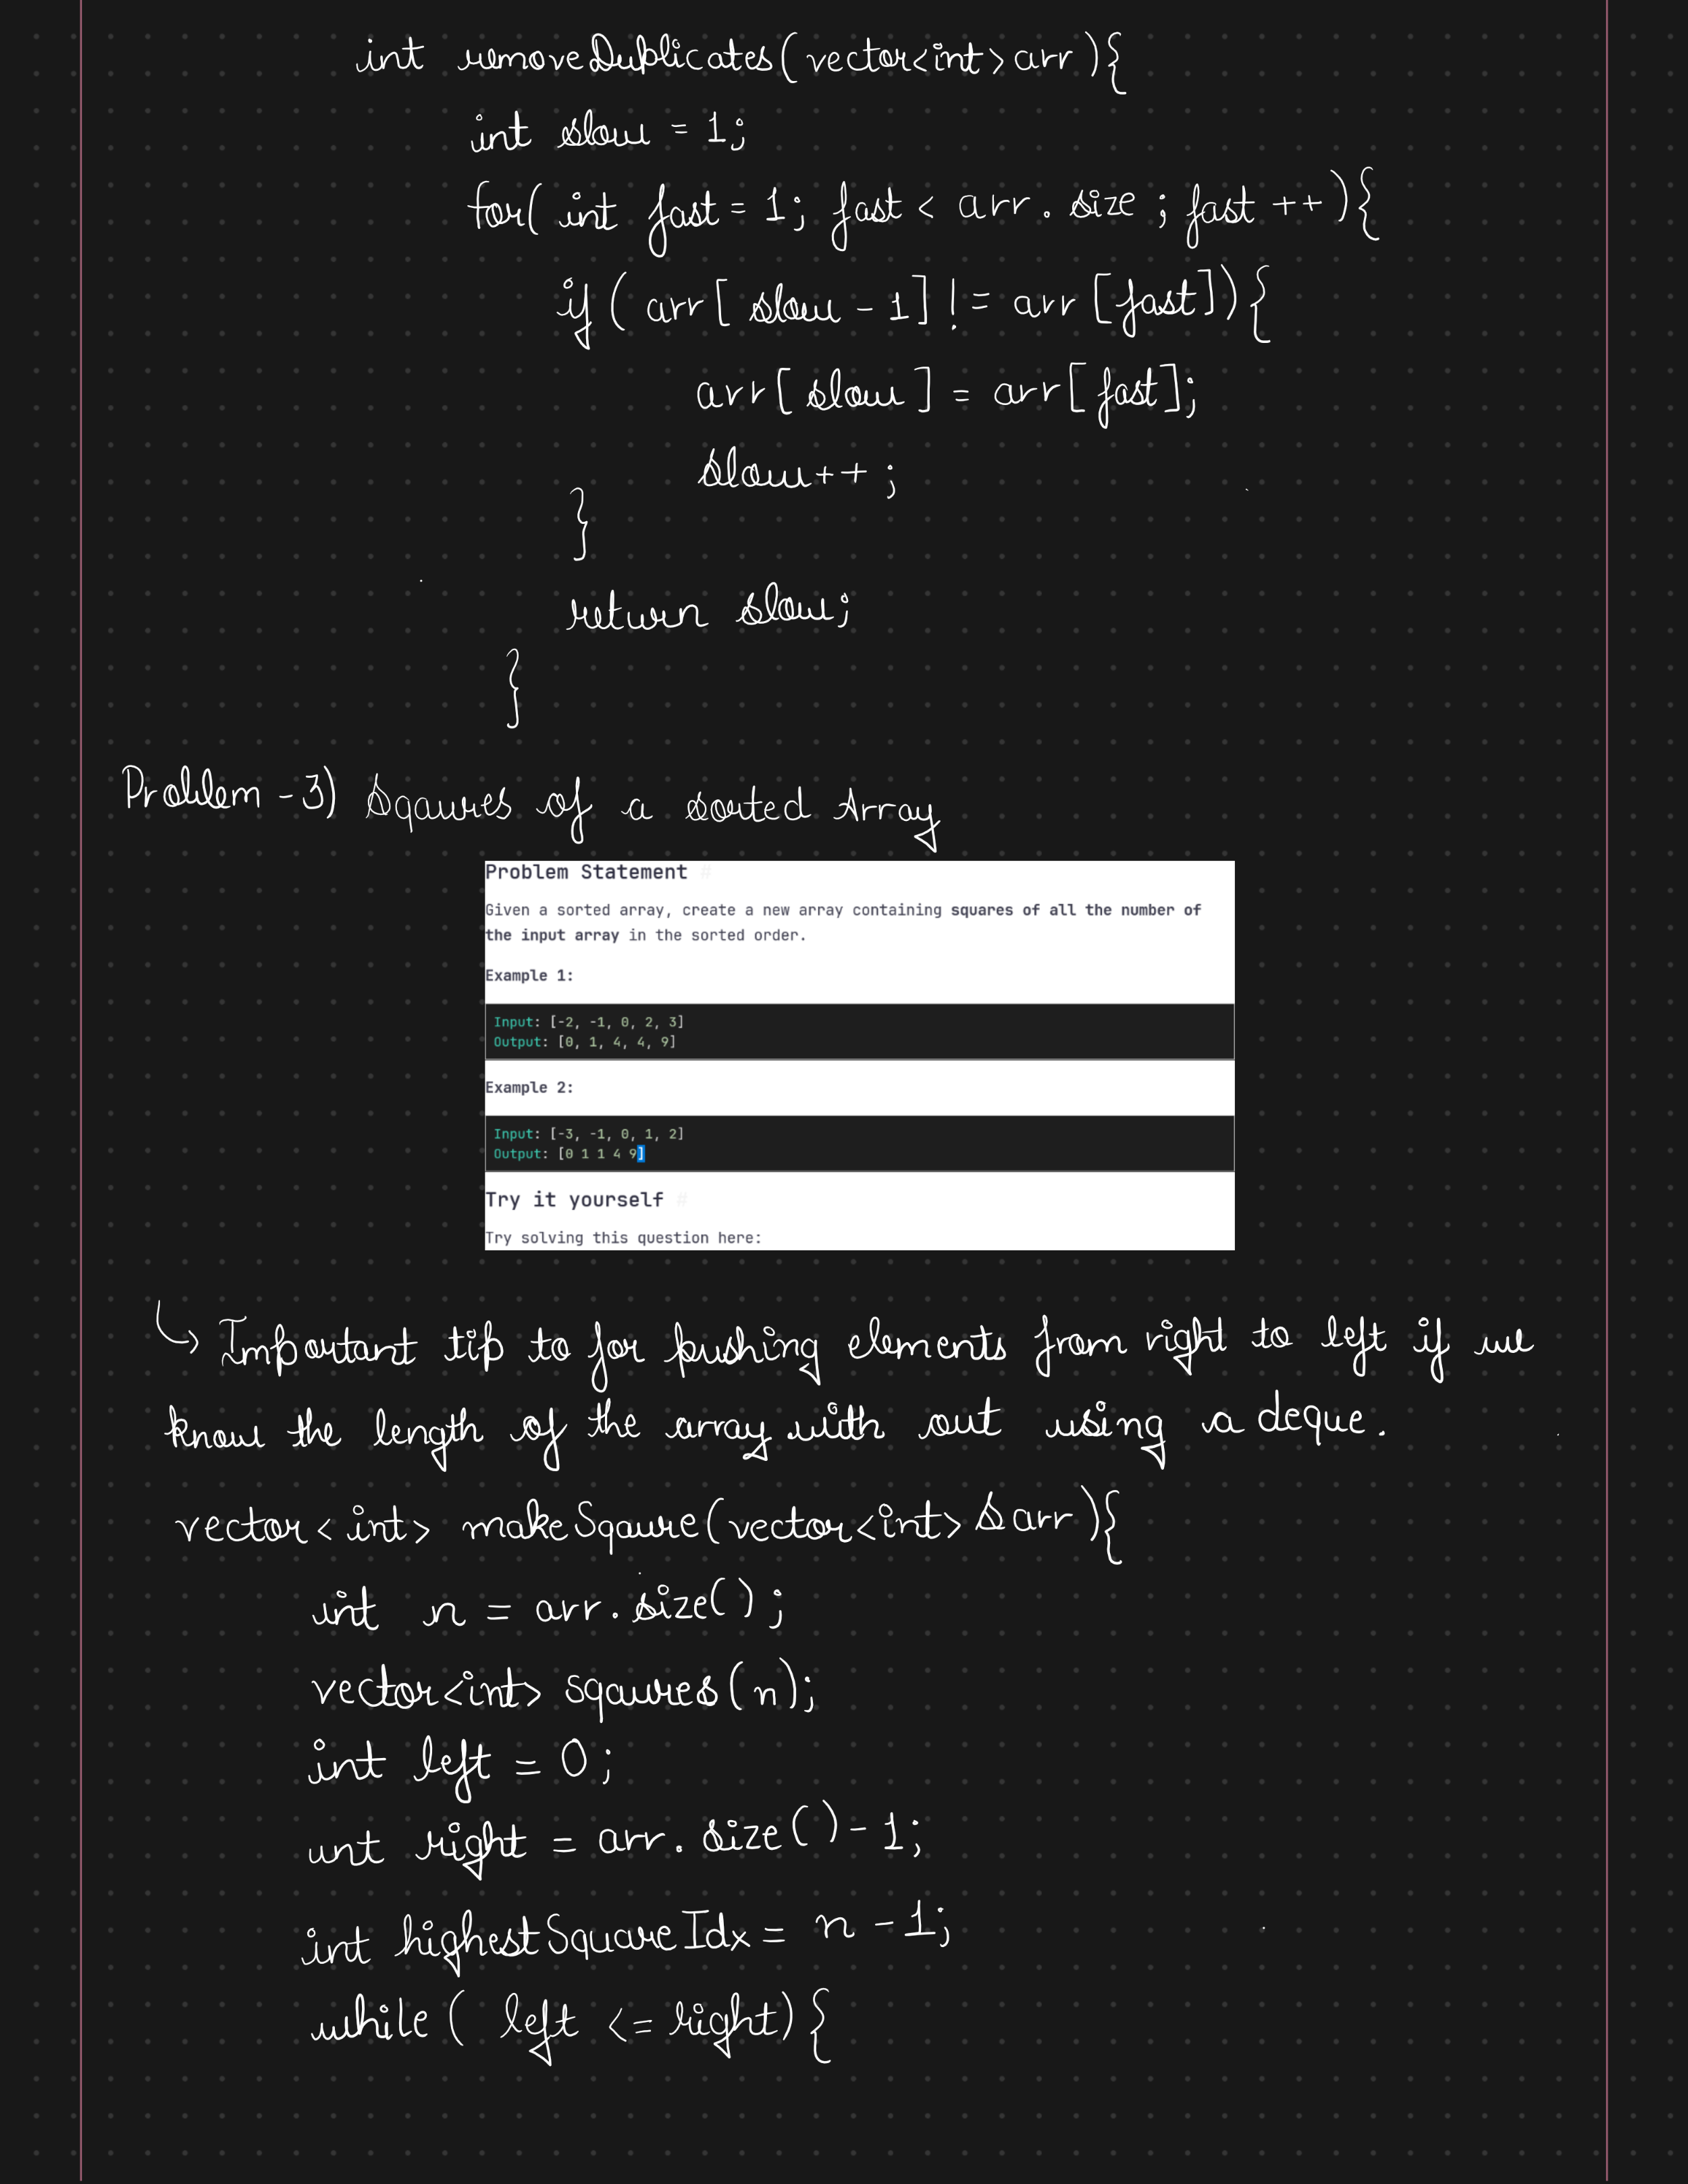 int removeDuplicates(vector<int>arr){
int slow = 1;
for( int fast = 1; fast < arr. size ; fast ++){
if ( arr[ slow - 1] != arr [fast]){
arr[ slow ] = arr[ fast];
slow++ ;
}
return slow;
}
Problem -3) Sqaures of a sorted Array
Problem Statement #
Given a sorted array, create a new array containing squares of all the number of
the input array in the sorted order.
Example 1:
Input: [-2, -1, 0, 2, 3]
Output: [0, 1, 4, 4, 9]
Example 2:
Input: [-3, -1, 0, 1, 2]
Output: [0 1 1 4 9]
Try it yourself #
Try solving this question here:
↳ Important tip to for pushing elements from right to left if we
know the length of the array with out using a deque.
vector< int> makeSqaure(vector<int> &arr){
int n = arr. size() ;
vector<int> sqaures(n);
int left = 0;
int right = arr. size() - 1;
int highestSquareIdx = n - 1;
while ( left <= right) {